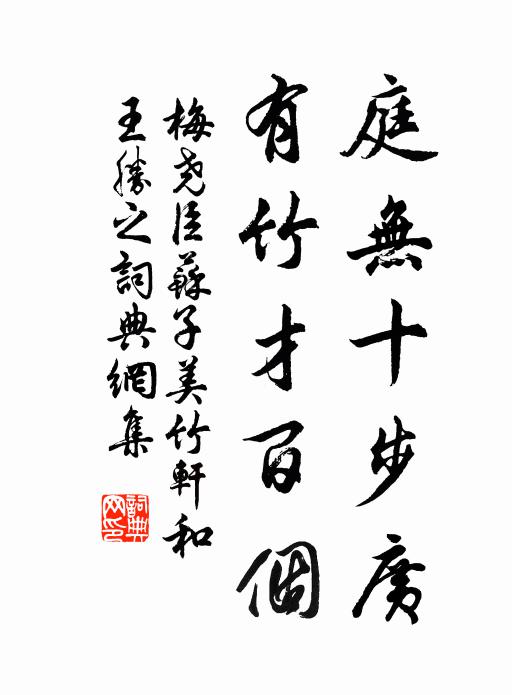 庭無十步廣
有竹才百個
梅尧臣蘇子美竹軒和
王勝之詞典網集
詞典
网印